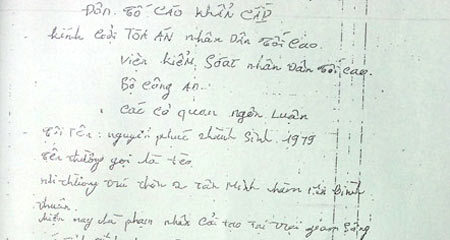 Đơn. TỐ CÁO KHẨN CẤP
kính Gởi TOÀ ÁN nhân Dân Tối Cao.
Viện kiểm, Soát nhân Dân Tối Cao.
Bộ Công An.
Các cơ quan ngôn Luân
Tôi Tên: nguyễn phúc thành Sinh. 1979
Tên thường gọi là tèo
nơi thường trú thôn 2 tân Minh hàm tân Bình
thuân.
hiện nay là phạm nhân Cải tạo tại trại giam Sông